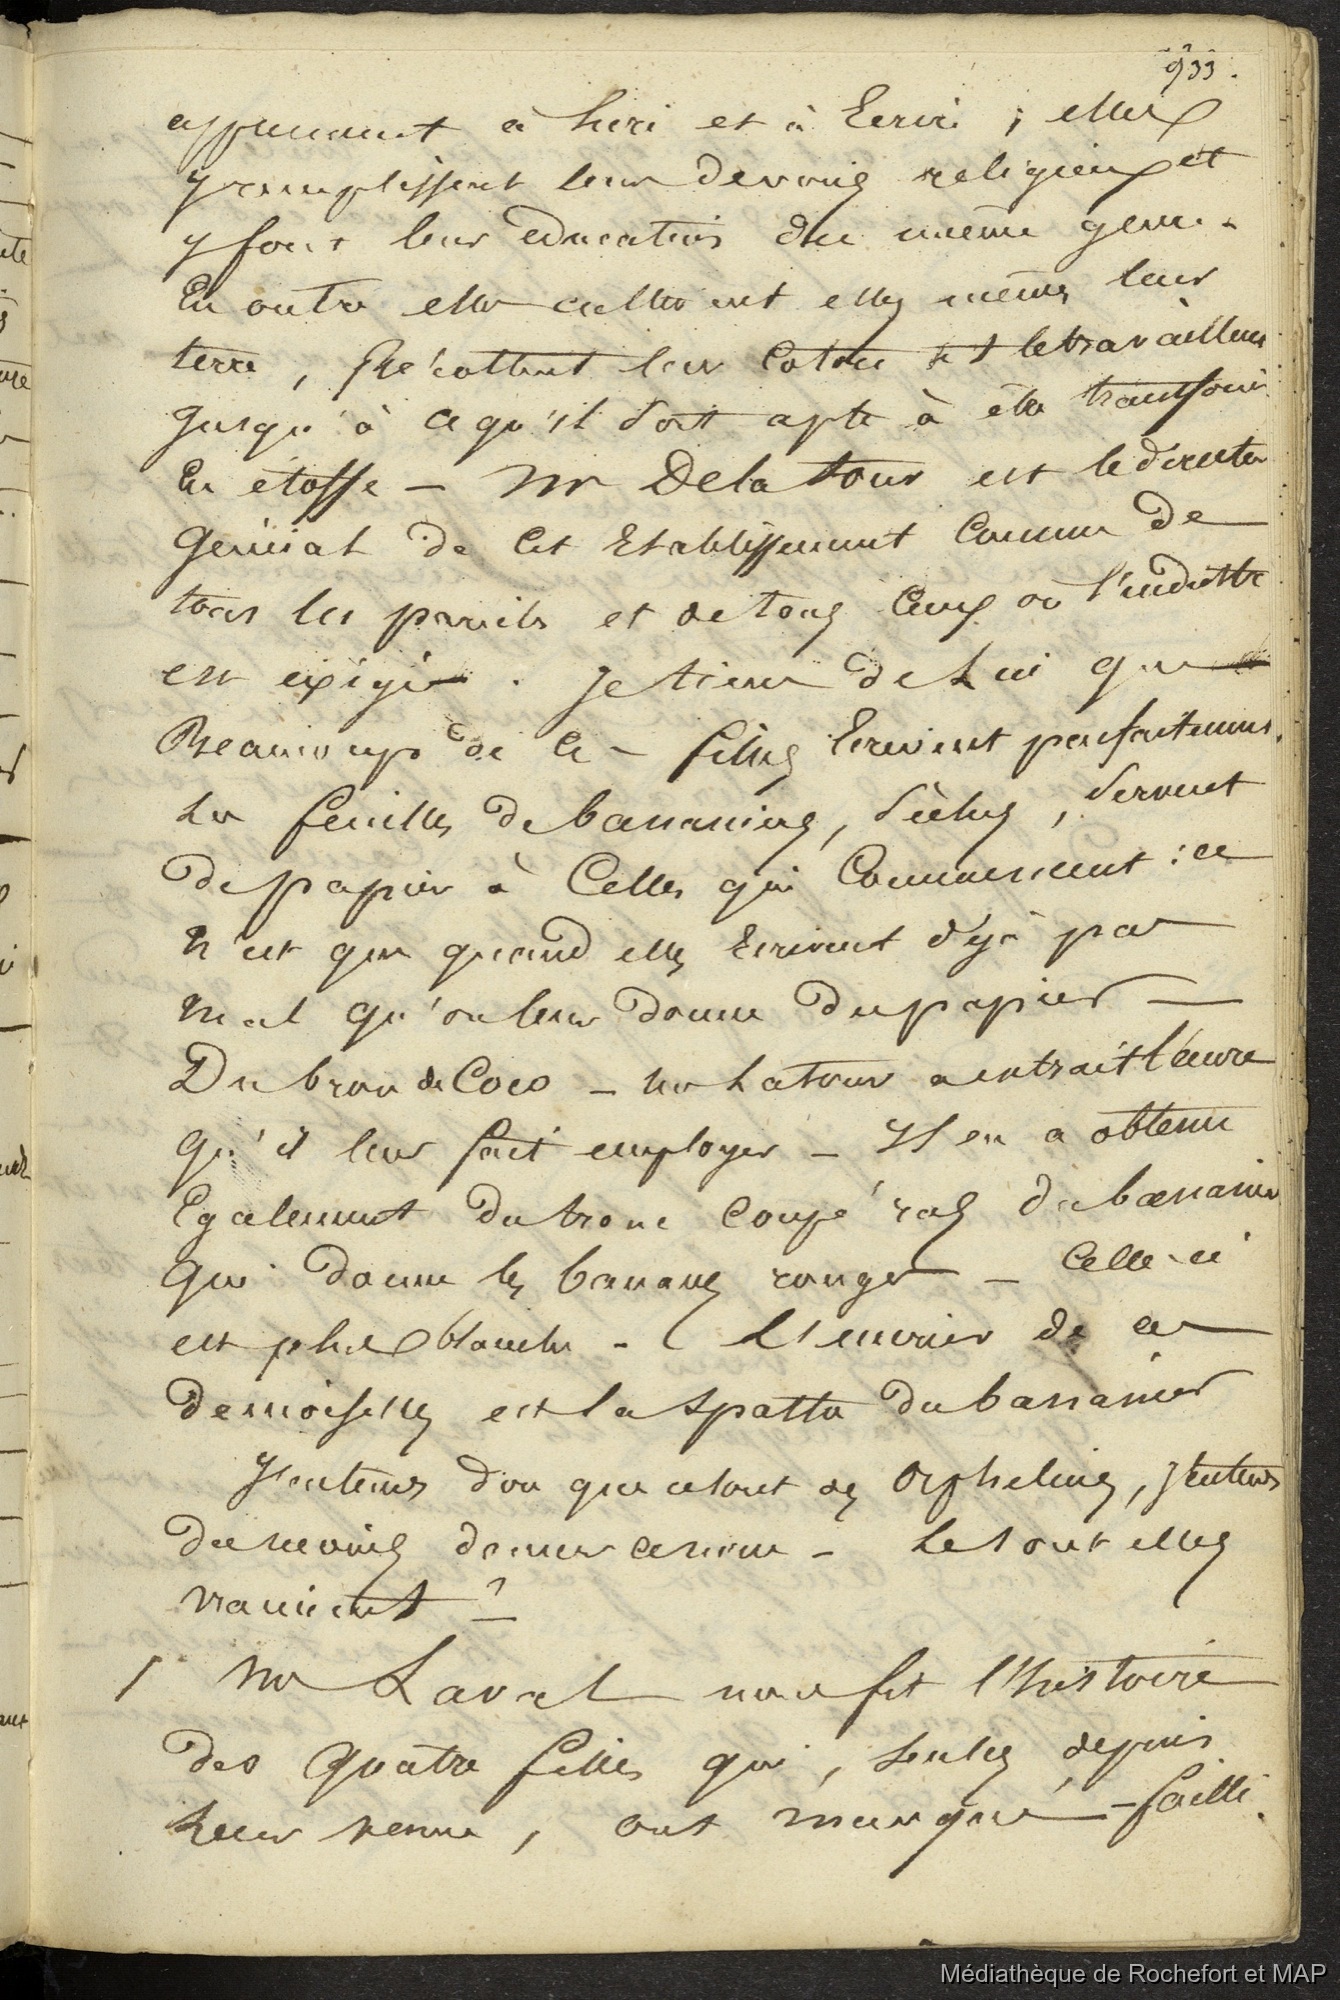 933.
apprennent à lire et à Ecrire ; elles
y remplissent leurs devoirs religieux et
y font leur education du même genre.
En outre elles cultivent elles mêmes leur
terre, Récoltent leur Coton et le travaillent
jusqu'à ce qu'il soit apte à être transformé
En étoffe — Mr Delatour est le directeur
Général de Cet Etablissement Comme de
tous les pareils et de tous Ceux où l'industrie
est exigée. Je tiens de Lui que
Beaucoup de Ces filles Ecrivent parfaitement.
Les feuilles de bananiers, séches, servent
de papier à Celles qui Commencent : ce
n'est que quand elles Ecrivent déjà pas
mal qu'on leur donne du papier —
Du brou de Coco — Mr Latour a extrait l'encre
qu'il leur fait employer — Il en a obtenu
Egalement du tronc coupé ras du bananier
qui donne les bananes rouges — Celle-ci
est plus blanche — L'Encrier de ces
demoiselles est la spathe du bananier
J'entends dire que ce sont des Orphelines, j'entends
du moins donner ce nom — Le sont elles
vraiment ?
/ Mr Laval nous fit l'histoire
des quatre filles qui, seules, depuis
Leur venue, ont manqué — failli.
Médiathèque de Rochefort et MAP